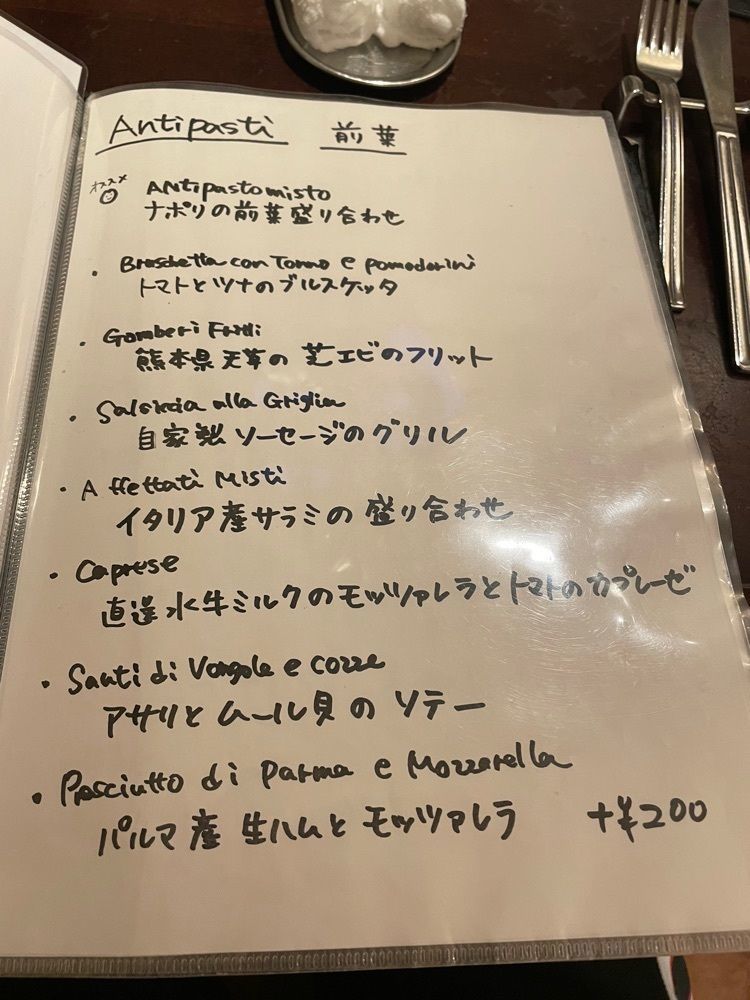 Antipasti 前菜
オススメ
Antipasto misto
ナポリの前菜盛り合わせ
・Bruschetta con Tonno e pomodorini
トマトとツナのブルスケッタ
・Gamberi Fritti
熊本県天草の芝エビのフリット
・Salsiccia alla Griglia
自家製ソーセージのグリル
・Affettati Misti
イタリア産サラミの盛り合わせ
・Caprese
直送水牛ミルクのモッツァレラとトマトのカプレーゼ
・Sauti di Vongole e cozze
アサリとムール貝のソテー
・Prosciutto di Parma e Mozzarella
パルマ産生ハムとモッツァレラ +¥200